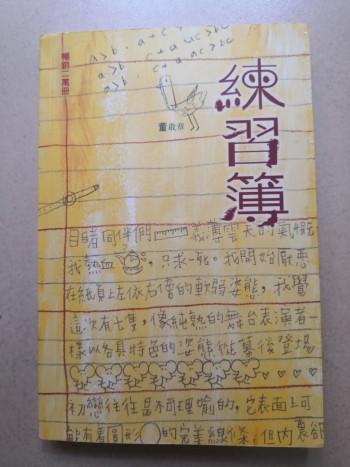 a>b. a+c>b+c
a>b c>o ac>bc
a>b. c<o ac<bc
暢銷二萬冊
練習簿
董啟章
目睹同伴們義薄雲天的氣慨
我熱血，只求一死。我開始厭惡
在紙頁上左依右傍的軟弱姿態，我覺
這次有七隻，像純熟的舞台表演者一
樣以各具特色的姿態從幕後登場
初戀往往是不可理喻的，它表面上可
能有着圓形的完美線條，但內裏卻